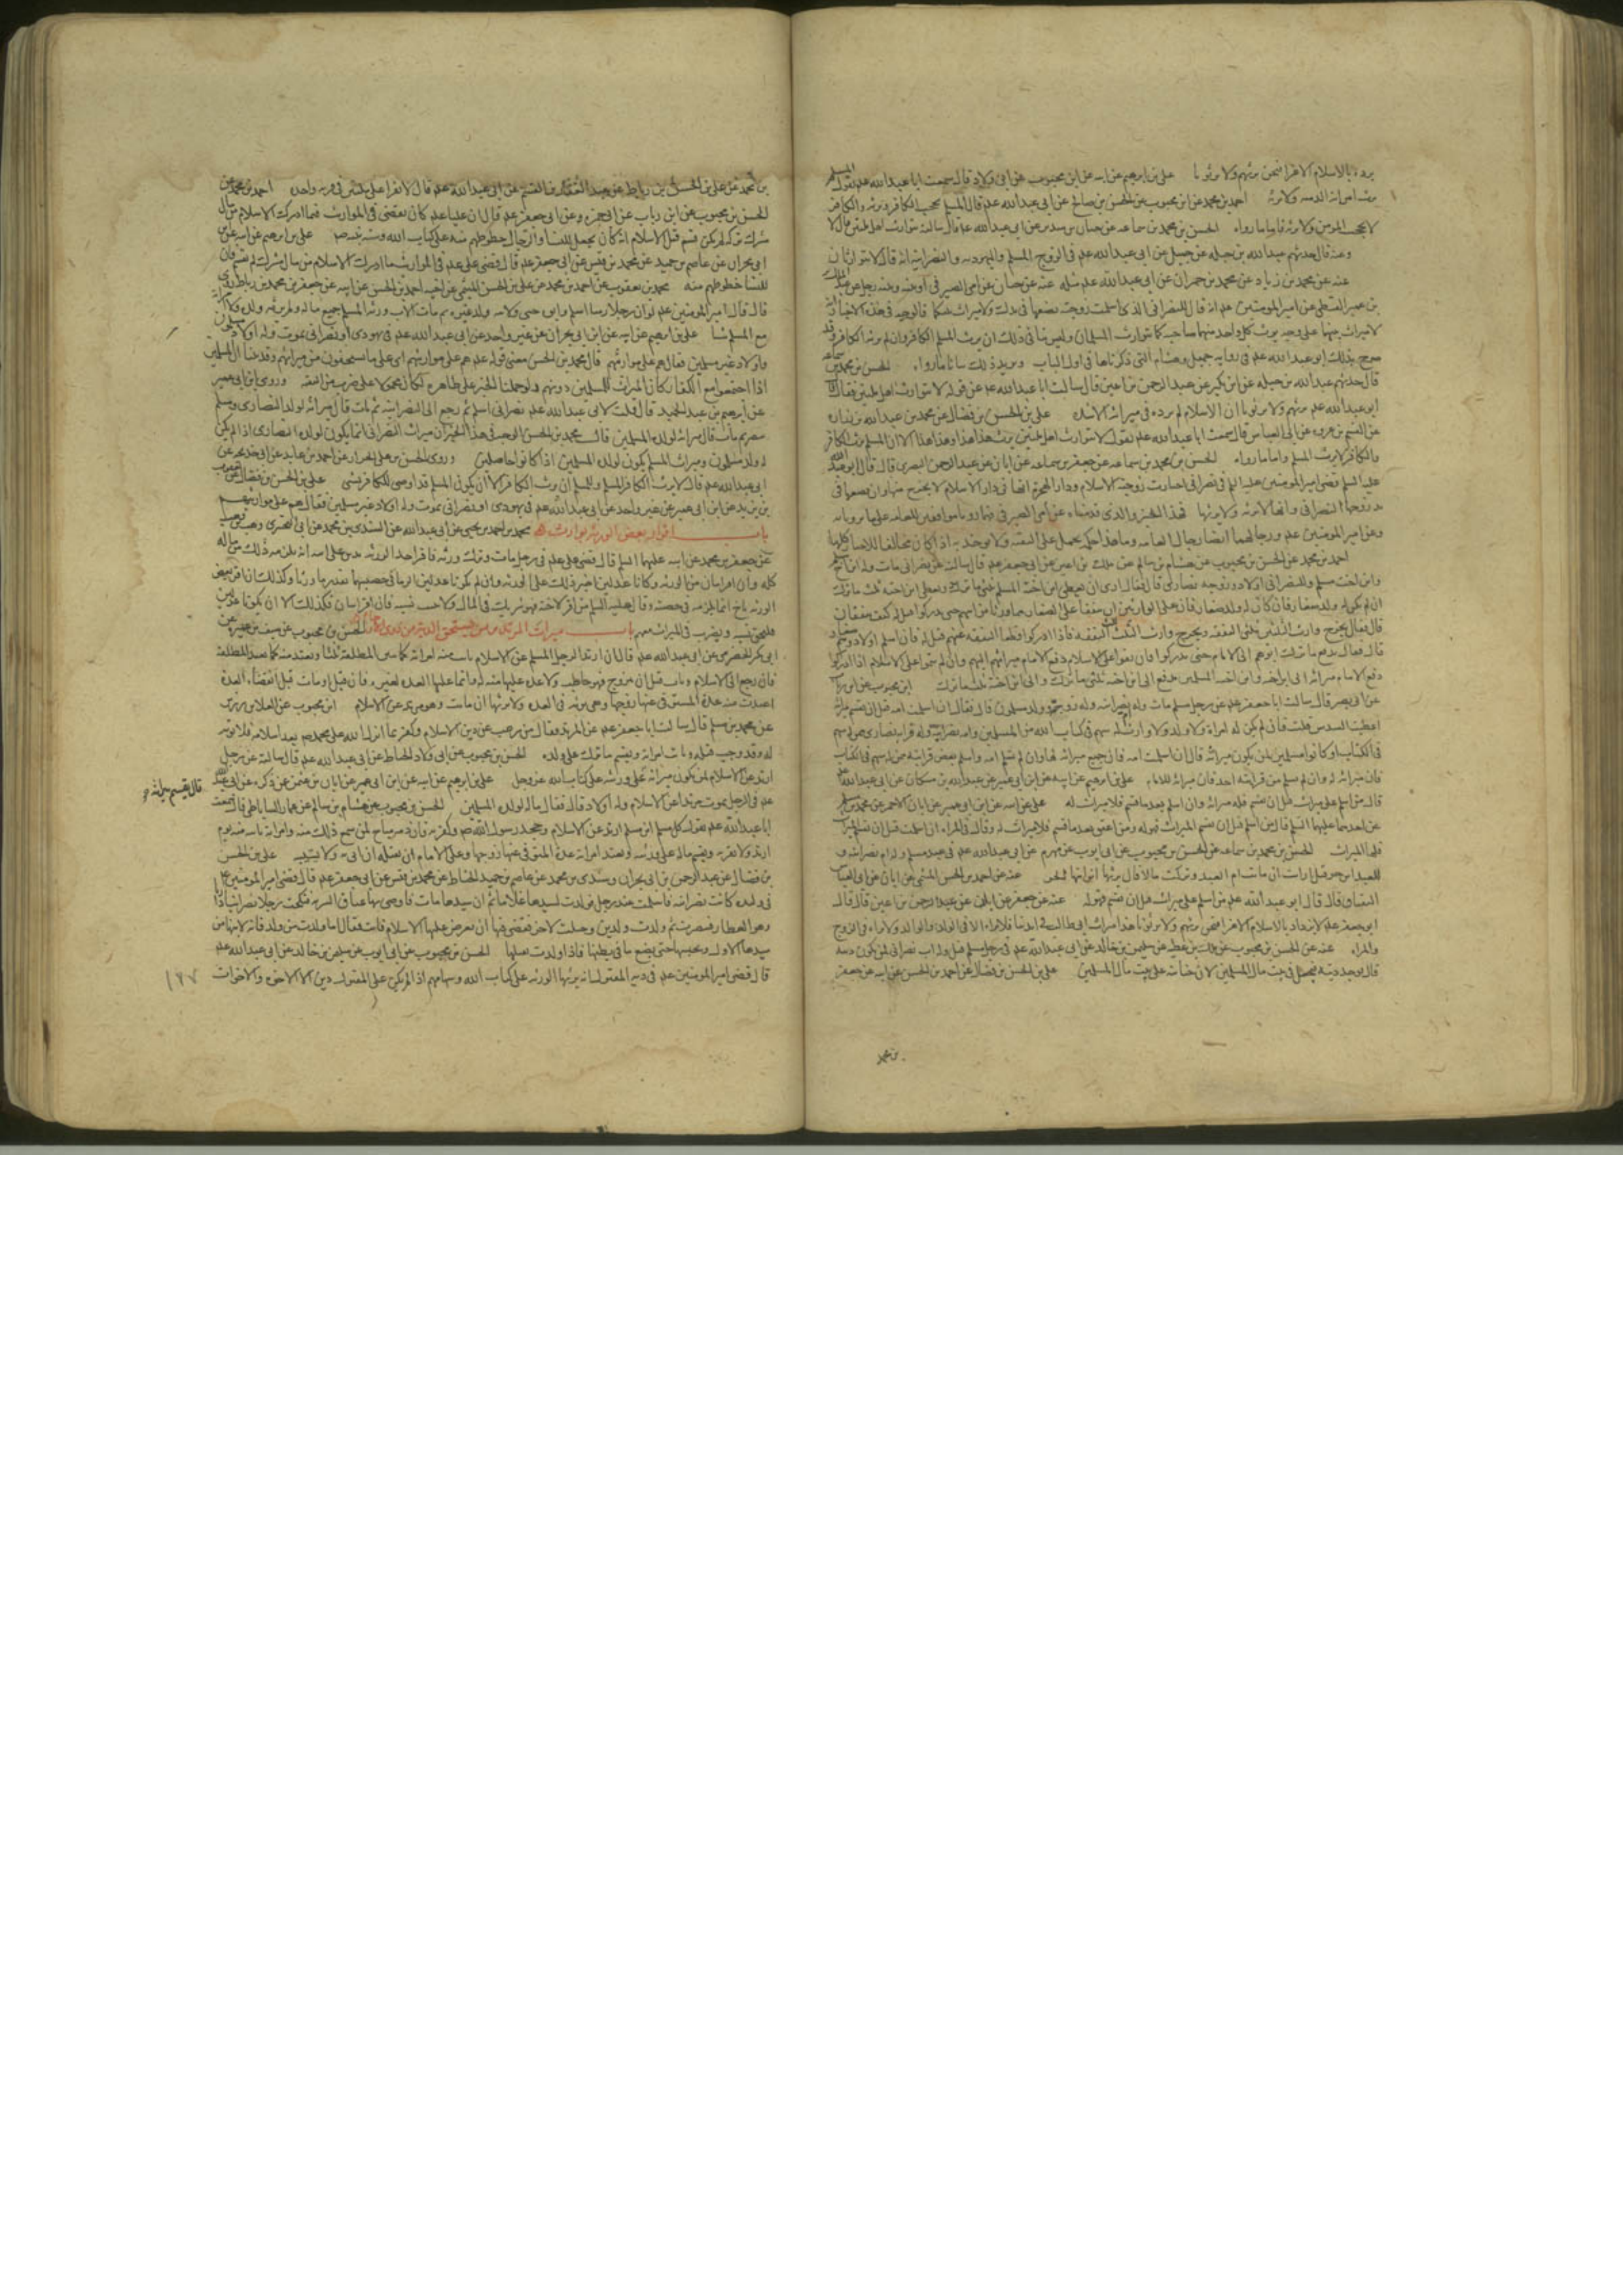 يرده بالاسلام الا عزا فنحن نرثهم ولا يرثونا علي بن ابرهيم عن ابيه عن ابن محبوب عن ابي ولاد قال سمعت ابا عبد الله عليه يقول المسلم
يرث امراته الذميه ولا ترثه احمد بن محمد عن ابن محبوب عن الحسن بن صالح عن ابي عبد الله عليه قال المسلم يحجب الكافر ويرثه والكافر
لا يحجب المومن ولا يرثه فاما ما رواه الحسن بن محمد بن سماعه عن حنان بن سدير عن ابي عبد الله قال سالته يتوارث اهل ملتين قال لا
وعنه قال حدثهم عبد الله بن جبله عن جميل عن ابي عبد الله عليه في الزوج المسلم واليهوديه والنصرانيه انه قال لا يتوارثان
عنه عن محمد بن زياد عن محمد بن حمران عن ابي عبد الله عليه مثله
لا ميراث بينهما على وجه يرث كل واحد منهما صاحبه كما يتوارث المسلمان وليس ينافي ذلك ان يرث المسلم الكافر وان لم يرثه الكافر وقد
صرح بذلك ابو عبد الله عليه في روايه جميل وهشام التي ذكرناها في اول الباب ويزيد ذلك بيانا ما رواه الحسن بن محمد بن سماعه
قال حدثهم عبد الله بن جبله عن ابن بكير عن عبد الرحمن بن اعين قال سالت ابا عبد الله عن قوله لا يتوارث اهل ملتين فقال
ابو عبد الله عليه نرثهم ولا يرثونا ان الاسلام لم يزده في ميراثه الا شده علي بن الحسن بن فضال عن محمد بن عبد الله بن زراره
عن القسم بن عروه عن ابي العباس قال سمعت ابا عبد الله عليه يقول لا يتوارث اهل ملتين يرث هذا هذا وهذا هذا الا ان المسلم يرث الكافر
والكافر لا يرث المسلم واما ما رواه الحسن بن محمد بن سماعه عن جعفر بن سماعه عن ابان عن عبد الرحمن البصري قال قال ابو عبد الله
عليه السلم قضى امير المومنين عليه السلم في نصراني اختارت زوجته الاسلام ودار الهجره انها في دار الاسلام لا تخرج منها وان بضعها في
يد زوجها النصراني وانها لا ترثه ولا يرثها
احمد بن محمد عن الحسن بن محبوب عن هشام بن سالم عن عبد الملك بن اعين عن ابي جعفر عليه قال سالته عن نصراني مات وله ابن اخ مسلم
وابن اخت مسلم وللنصراني اولاد وزوجه نصارى قال فقال ارى ان يعطى ابن اخيه المسلم ثلثي ما ترك ويعطى ابن اخته ثلث ما ترك
ان لم يكن له ولد صغار فان كان له ولد صغار فان على الوارثين ان ينفقا على الصغار مما ورثا من ابيهم حتى يدركوا قيل له كيف ينفقان
قال فقال يخرج وارث الثلثين ثلثي النفقه ويخرج وارث الثلث ثلث النفقه فاذا ادركوا قطعا النفقه عنهم قيل له فان اسلم اولاده وهم صغار
قال فقال يدفع ما ترك ابوهم الى الامام حتى يدركوا فان بقوا على الاسلام دفع الامام ميراثهم اليهم وان لم يبقوا على الاسلام اذا ادركوا
دفع الامام ميراثه الى ابن اخيه وابن اخته المسلمين يدفع الى ابن اخيه ثلثي ما ترك والى ابن اخته ثلث ما ترك ابن محبوب عن ابن رياب
عن ابي بصير قال سالت ابا جعفر عليه عن رجل مسلم مات وله ام نصرانيه وله زوجه وولد مسلمون قال فقال ان اسلمت امه قبل ان يقسم ميراثه
اعطيت السدس قلت فان لم يكن له امراه ولا ولد ولا وارث له سهم في كتاب الله من المسلمين وامه نصرانيه وله قرابه نصارى ممن له سهم
في الكتاب لو كانوا مسلمين لمن يكون ميراثه قال ان اسلمت امه فان جميع ميراثه لها وان لم تسلم امه واسلم بعض قرابته ممن له سهم في الكتاب
فان ميراثه له وان لم يسلم من قرابته احد فان ميراثه للامام علي بن ابرهيم عن ابيه عن ابن ابي عمير عن عبد الله بن مسكان عن ابي عبد الله عليه
قال من اسلم على ميراث قبل ان يقسم فله ميراثه وان اسلم بعد ما قسم فلا ميراث له علي عن ابيه عن ابن ابي عمير عن ابان الاحمر عن محمد بن مسلم
عن احدهما عليهما السلم قال من اسلم قبل ان يقسم الميراث فهو له ومن اعتق بعد ما قسم فلا ميراث له وقال في المراه اذا اسلمت قبل ان يقسم الميراث
فلها الميراث الحسن بن محمد بن سماعه عن الحسن بن محبوب عن ابي ايوب عن مهزم عن ابي عبد الله عليه في عبد مسلم وله ام نصرانيه و
للعبد ابن حر قيل ارايت ان ماتت ام العبد وتركت مالا قال يرثها ابن ابنها الحر عنه عن احمد بن الحسن الميثمي عن ابان عن ابي العباس
البقباق قال قال ابو عبد الله عليه من اسلم على ميراث قبل ان يقسم فهو له عنه عن جعفر عن ابان عن عبد الرحمن بن اعين قال قال
ابو جعفر عليه لا نزداد بالاسلام الا عزا فنحن نرثهم ولا يرثونا هذا ميراث ابي طالب في ايدينا فلا نراه الا في الولد والوالد ولا نراه في الزوج
والمراه عنه عن الحسن بن محبوب عن مالك بن عطيه عن سليمن بن خالد عن ابي عبد الله عليه في رجل مسلم قتل وله اب نصراني لمن تكون ديته
قال يوخذ ديته فيجعل في بيت مال المسلمين لان جنايته على بيت مال المسلمين علي بن الحسن بن فضال عن احمد بن الحسن عن ابيه عن جعفر
بن محمد
بن محمد عن علي بن الحسن بن رباط عن عبد الغفار بن القسم عن ابي عبد الله عليه قال لا تقرا على ملتين في قريه واحده احمد بن محمد عن
الحسن بن محبوب عن ابن رياب عن ابي حمزه وعن ابي جعفر عليه قال ان عليا عليه كان يقضي في المواريث فيما ادرك الاسلام من مال
مشرك تركه لم يكن قسم قبل الاسلام انه كان يجعل للنسا والرجال حظوظهم منه على كتاب الله وسنه نبيه ص علي بن ابرهيم عن ابيه عن
ابي نجران عن عاصم بن حميد عن محمد بن قيس عن ابي جعفر عليه قال قضى علي عليه في المواريث ما ادرك الاسلام من مال مشرك لم يقسم فان
للنسا حظوظهم منه
قال قال امير المومنين عليه لو ان رجلا ذميا اسلم وابوه حي ولابيه ولد غيره ثم مات الاب ورثه المسلم جميع ماله ولم يرثه ولده ولا امراته
مع المسلم شيا علي بن ابرهيم عن ابيه عن ابن ابي نجران عن غير واحد عن ابي عبد الله عليه في يهودي او نصراني يموت وله اولاد مسلمون
واولاد غير مسلمين فقال هم على مواريثهم قال محمد بن الحسن معنى قوله عليه هم على مواريثهم اي على ما يستحقون من ميراثهم وقد بينا ان المسلمين
اذا اجتمعوا مع الكفار كان الميراث للمسلمين دونهم ولو حملنا الخبر على ظاهره لكان محمولا على ضرب من التقيه وروى ابن ابي عمير
عن ابرهيم بن عبد الحميد قال قلت لابي عبد الله عليه نصراني اسلم ثم رجع الى النصرانيه ثم مات قال ميراثه لولده النصارى ومسلم
تنصر ثم مات قال ميراثه لولده المسلمين قال محمد بن الحسن الوجه في هذا الخبر ان ميراث النصراني انما يكون لولده النصارى اذا لم يكن
له ولد مسلمون وميراث المسلم يكون لولده المسلمين اذا كانوا حاصلين وروى الحسن بن علي الخزاز عن احمد بن عايذ عن ابي خديجه عن
ابي عبد الله عليه قال لا يرث الكافر المسلم وللمسلم ان يرث الكافر الا ان يكون المسلم قد اوصى للكافر بشي علي بن الحسن بن فضال عن يعقوب
بن يزيد عن ابن ابي عمير عن غير واحد عن ابي عبد الله عليه في يهودي او نصراني يموت وله اولاد غير مسلمين فقال هم على مواريثهم
باب اقرار بعض الورثه بوارث محمد بن احمد بن يحيى عن ابي عبد الله عن السندي بن محمد عن ابي البختري وهب بن وهب
عن جعفر بن محمد عن ابيه عليهما السلم قال قضى علي عليه في رجل مات وترك ورثه فاقر احد الورثه بدين على ابيه انه يلزمه ذلك
كله وان اقر اثنان من الورثه وكانا عدلين اجيز ذلك على الورثه وان لم يكونا عدلين الزما في حصتهما بقدر ما ورثا وكذلك ان اقر بعض
الورثه باخ انما يلزمه في حصته وقال عليه السلم من اقر لاخيه فهو شريك في المال ولا يثبت نسبه فان اقر اثنان فكذلك الا ان يكونا عدلين
فيلحق نسبه ويضرب في الميراث معهم باب ميراث المرتد ومن يستحق الديه من ذوي الارحام الحسن بن محبوب عن سيف بن عميره عن
ابي بكر الحضرمي عن ابي عبد الله عليه قال ان ارتد الرجل المسلم عن الاسلام بانت منه امراته كما تبين المطلقه ثلثا وتعتد منه كما تعتد المطلقه
فان رجع الى الاسلام وتاب قبل ان تتزوج فهو خاطب ولا عده عليها منه له وانما عليها العده لغيره فان قتل او مات قبل انقضاء العده
اعتدت منه عده المتوفى عنها زوجها وهي ترثه في العده ولا يرثها ان ماتت وهو مرتد عن الاسلام ابن محبوب عن العلا بن رزين
عن محمد بن مسلم قال سالت ابا جعفر عليه عن المرتد فقال من رغب عن دين الاسلام وكفر بما انزل الله على محمد ص بعد اسلامه فلا توبه
له وقد وجب قتله وبانت امراته ويقسم ما ترك على ولده الحسن بن محبوب عن ابي ولاد الحناط عن ابي عبد الله عليه قال سالته عن رجل
ارتد عن الاسلام لمن يكون ميراثه
قال يقسم ميراثه
على ورثته على كتاب الله عز وجل علي بن ابرهيم عن ابيه عن ابن ابي عمير عن ابان بن عثمن عمن ذكره عن ابي عبد الله
عليه في الرجل يموت مرتدا عن الاسلام وله اولاد قال فقال ماله لولده المسلمين الحسن بن محبوب عن هشام بن سالم عن عمار الساباطي قال سمعت
ابا عبد الله عليه يقول كل مسلم ابن مسلم ارتد عن الاسلام وجحد رسول الله ص وكذبه فان دمه مباح لمن سمع ذلك منه وامراته باينه منه يوم
ارتد ولا تقربه ويقسم ماله على ورثته وتعتد امراته عده المتوفى عنها زوجها وعلى الامام ان يقتله ان اتي به ولا يستتيبه علي بن الحسن
بن فضال عن عبد الرحمن بن ابي نجران وسندي بن محمد عن عاصم بن حميد الحناط عن محمد بن قيس عن ابي جعفر عليه قال قضى امير المومنين عليه
في وليده كانت نصرانيه فاسلمت عند رجل فولدت لسيدها غلاما ثم ان سيدها مات فاوصى بها عتاق السريه فنكحت رجلا نصرانيا
وهو العطار فتنصرت ثم ولدت ولدين وحملت لاخر فقضى فيها ان يعرض عليها الاسلام فابت فقال اما ما ولدت من ولد فانه لابنها من
سيدها الاول ويحبسها حتى تضع ما في بطنها فاذا ولدت يقتلها الحسن بن محبوب عن ابي ايوب عن سليمن بن خالد عن ابي عبد الله عليه
قال قضى امير المومنين عليه في ديه المقتول انه يرثها الورثه على كتاب الله وسهامهم اذا لم يكن على المقتول دين الا الاخوه والاخوات
١٦٧